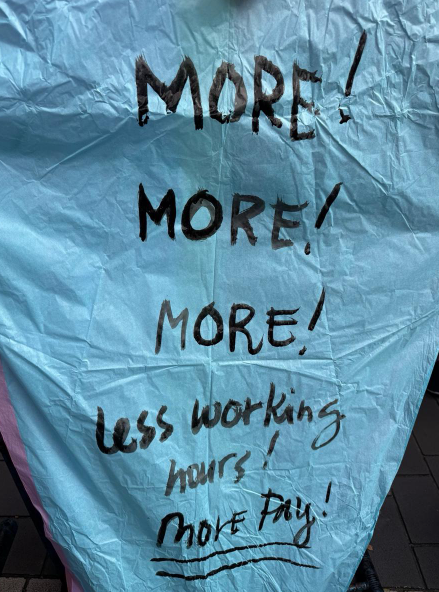 MORE!
MORE!
MORE!
Less working
hours!
More Pay!